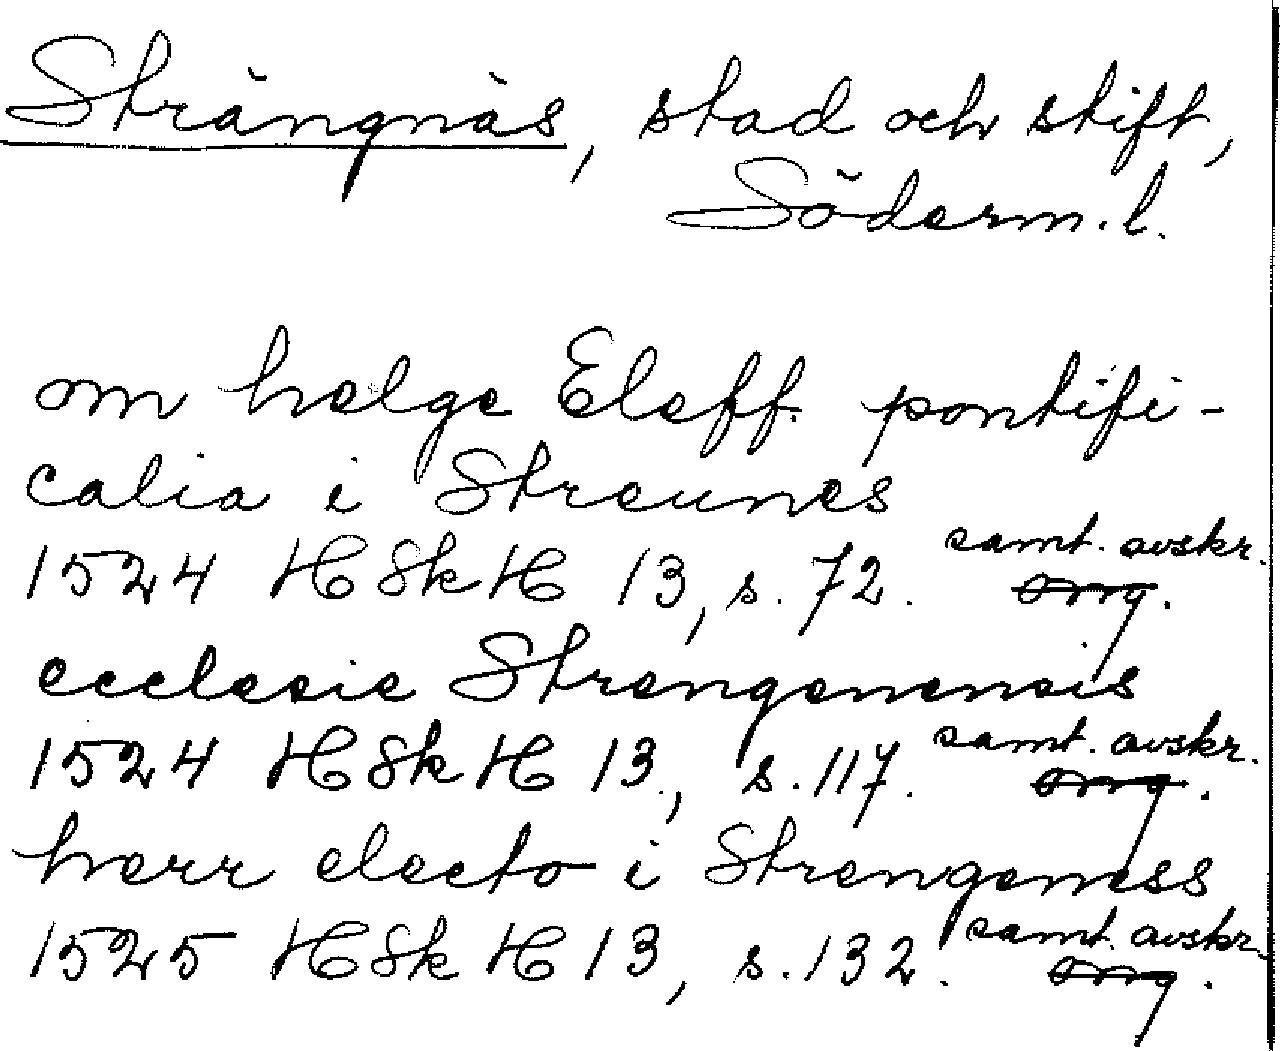 Strängnäs, stad och stift,
Söderm.l.
om helge Eleff. pontifi-
calia i Streunes
samt. avskr.
1524 HSkH 13, s. 72. orig.
ecclesie Strengenensis
samt. avskr.
1524 HSkH 13, s. 117. orig.
herr electo i Strengeness
samt. avskr.
1525 HSkH 13, s. 132. orig.